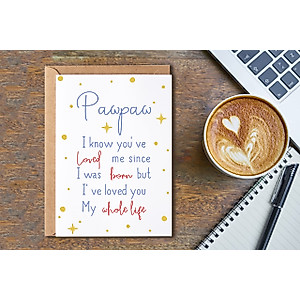 Pawpaw
I know you've
Loved me since
I was born but
I've loved you
My whole life